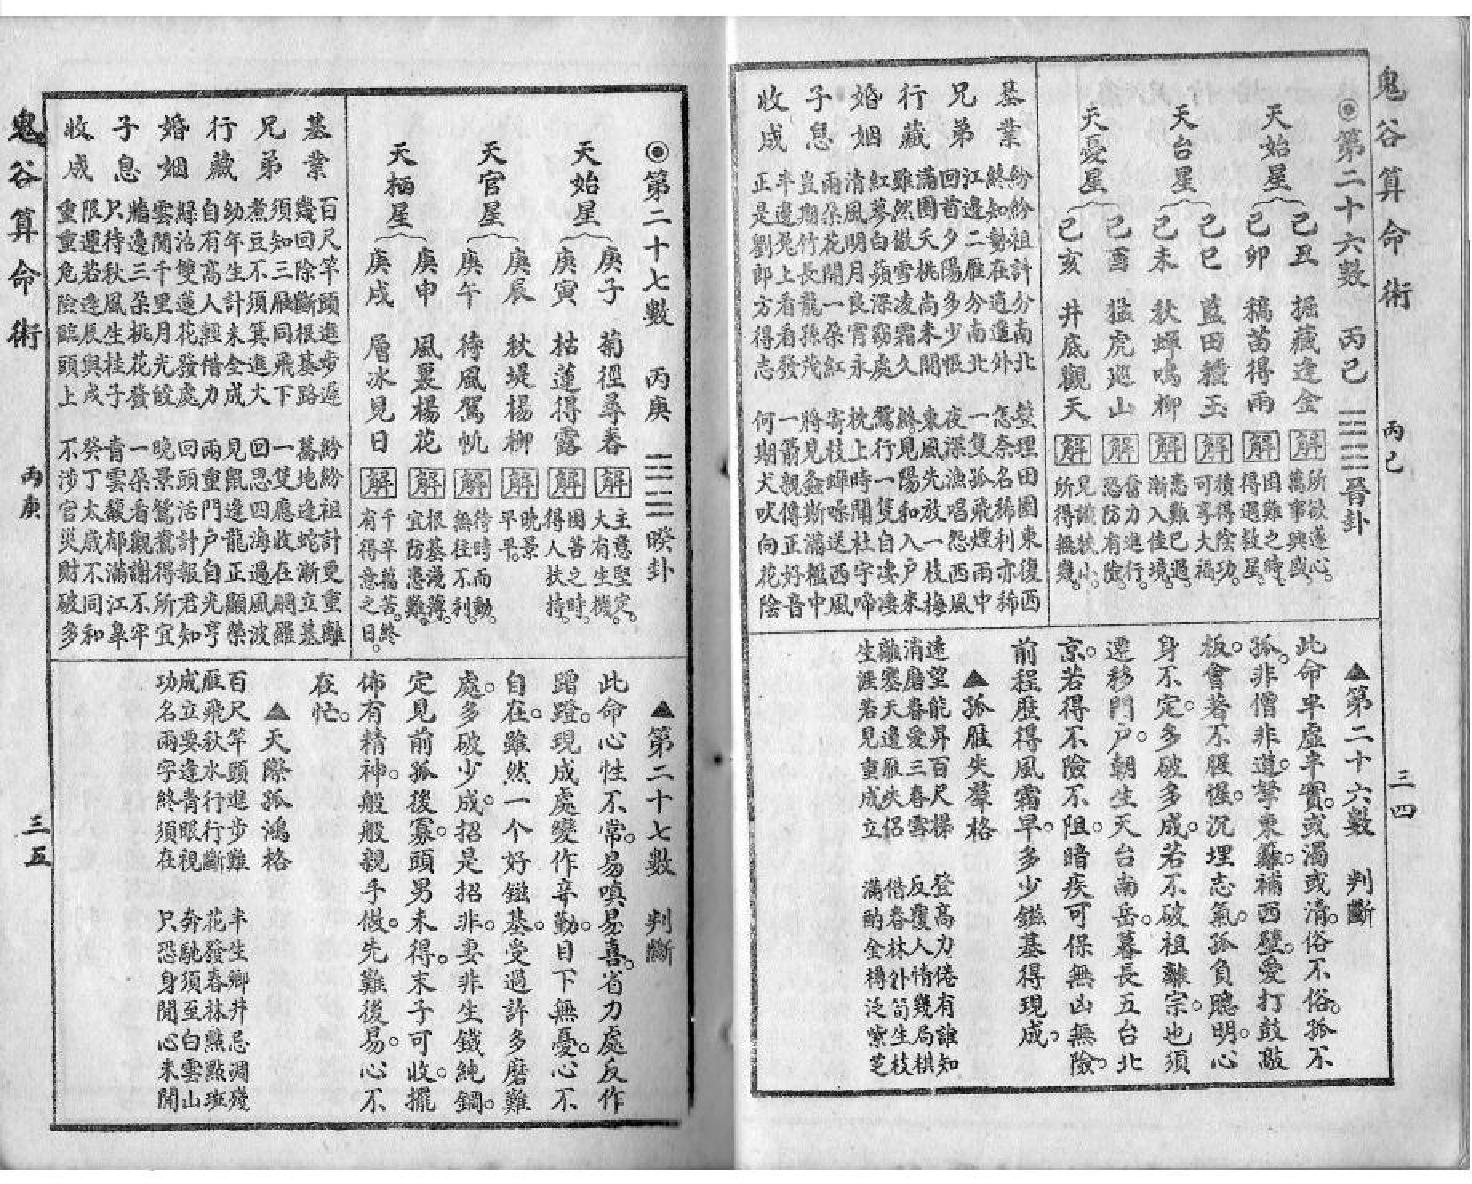 鬼谷算命術
丙己
三四
◉第二十六數 丙己 晉卦
天始星
己丑 掘藏逢金 解 所欲遂心。萬事興盛。
己卯 稿苗得雨 解 困雖之時。得遇救星。
天台星
己巳 藍田種玉 解 積得陰功。可享大福。
己未 秋蟬鳴柳 解 患難已過。漸入佳境。
天憂星
己酉 猛虎巡山 解 奮力進行。恐防有險。
己亥 井底觀天 解 見識狹小。所得無幾。
基業 紛紛祖計分南北 整理田園東復西
終知勢在逍遙外 怎奈名稀利亦稀
兄弟 江邊二雁分南北 一隻孤飛煙雨中
回首夕陽多少恨 夜深漁唱怨西風
行藏 滿園夭桃尚未開 東風先放一枝梅
雖然傲雪凌霜久 終見陽和入戶來
婚姻 紅蓼白蘋深窈處 鴛行一隻自凄凄
清風明月良宵永 枕上時聞杜宇啼
子息 雨朵花開一朵紅 寄枝蟬噪送西風
豈期竹長龍孫茂 將見螽斯滿檻中
收成 半邊兎上看看發 一箭親傳正好音
正是劉郎方得志 何期犬吠向花陰
▲第二十六數 判斷
此命半虛半實。或濁或清。俗不俗。孤不
孤。非僧非道。拏東籬。補西壁。愛打鼓敲
板。會著不腥惺。沉埋志氣。孤負聰明。心
身不定。多破多成。若不破祖離宗。也須
遷移門戶。朝生天台南岳。暮長五台北
京。若得不險不阻。暗疾可保無凶無險。
前程歷得風霜早。多少鎡基得現成。
▲孤雁失羣格
遠望能昇百尺梯 登高力倦有誰知
消磨春愛三春雪 反覆人情幾局棋
離鑾天邊雁失侶 借春林外笥生枝
生涯若見重成立 滿酌金樽泛紫芝
◉第二十七數 丙庚 睽卦
天始星
庚子 菊徑尋春 解 主意堅定。大有生機。
庚寅 枯蓮得露 解 困苦之時。得人扶持。
天官星
庚辰 秋堤楊柳 解 晚景早晃。
庚午 待風駕帆 解 待時而動。無往不利。
天禍星
庚申 風裏楊花 解 根基淺薄。宜防患難。
庚戌 層冰見日 解 千辛萬苦。終有得意之日。
基業 百尺竿頭進步遲 紛紛祖計更重離
幾回除斷根基路 驀地逢蛇漸立基
兄弟 須知三雁同飛下 一雙應收在網羅
煮豆不須箕進大 回思四海過風波
行藏 幼年生計未全成 見鼠逢龍正顯榮
自有高人輕借力 兩重門戶自光亨
婚姻 綠沼雙蓮花發處 回頭活計報君知
雲開千里月光皎 晚景鴛鴦得所宜
子息 牆邊三朵桃花發 一朵看觀謝不牢
只待秋風生桂子 青雲馥郁滿江皐
收成 限運若逢辰與戌 癸丁太歲不同和
重重危險臨頭上 不涉官災財破多
▲第二十七數 判斷
此命心性不常。易嗔易喜。省力處反作
蹭蹬。現成處變作辛勤。目下無憂。心不
自在。雖然一个好鎡基。受過許多磨難
處。多破少成。招是招非。妻非生鐵純鋼。
定見前孤後寡。頭男未得。末子可收。擺
佈有精神。般般親手做。先難後易。心不
在忙。
▲天際孤鴻格
百尺竿頭進步難 半生鄉井忌凋殘
雁飛秋水行行斷 花發春林點點斑
成立要逢青眼視 奔馳須至白雲山
功名兩字終須在 只恐身閒心未閒
鬼谷算命術
丙庚
三五